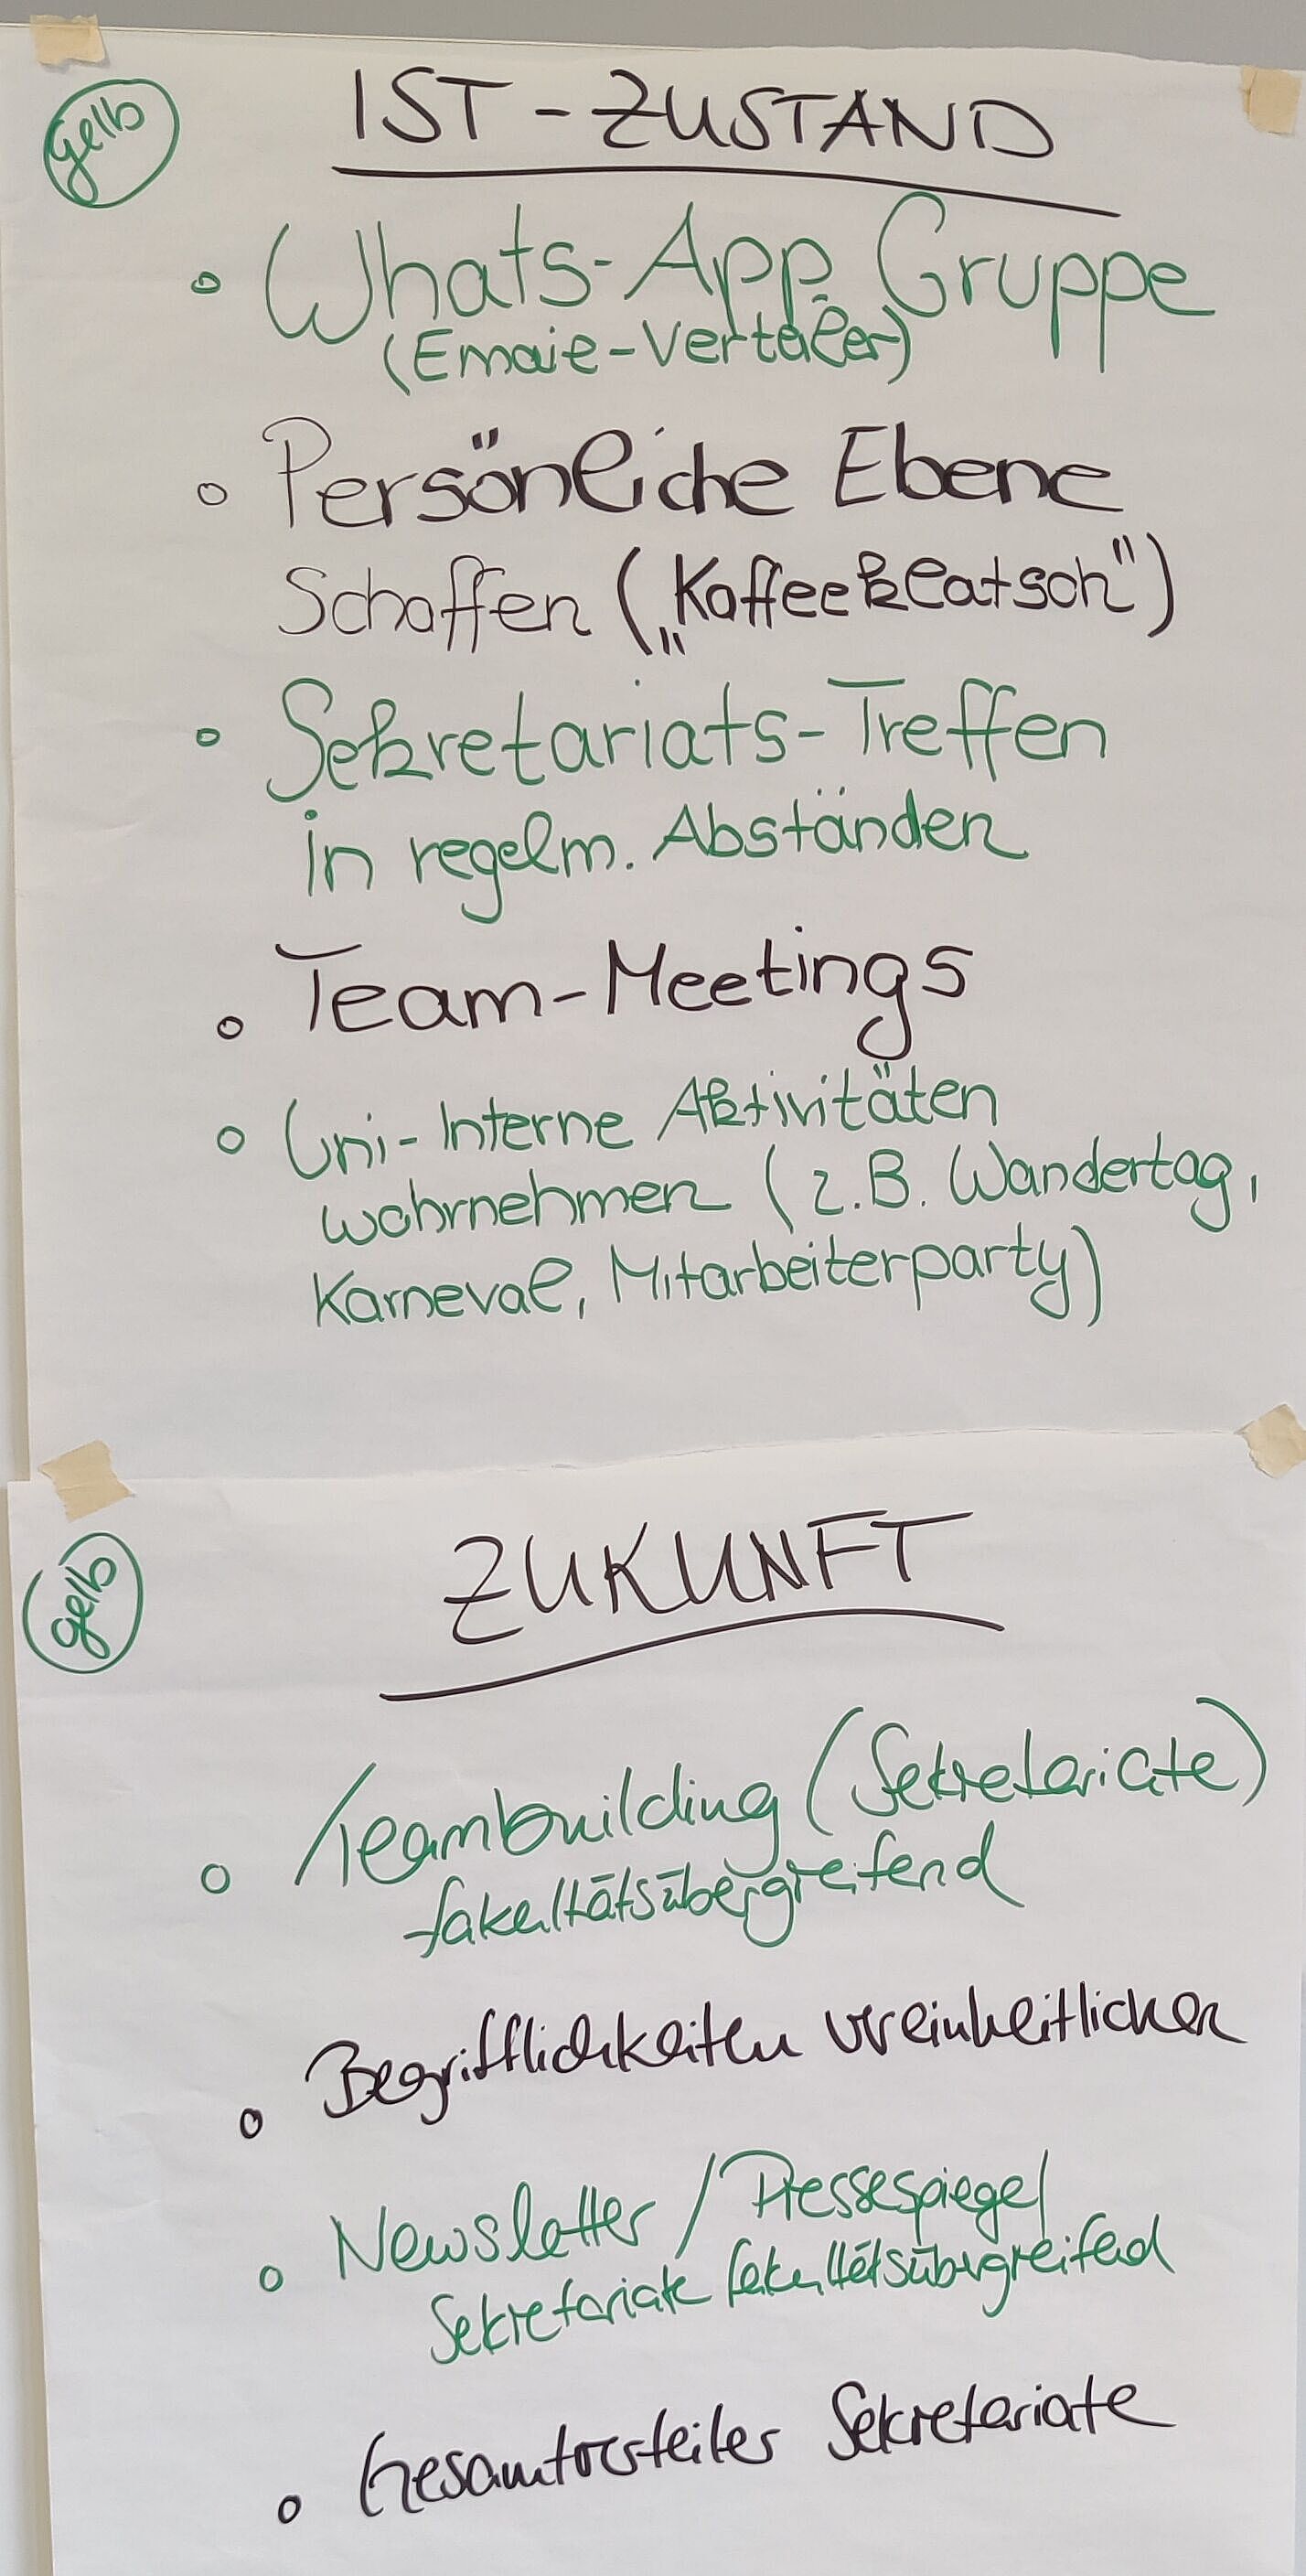 gelb
IST - ZUSTAND
Whats-App Gruppe
(Email-Verteiler)
Persönliche Ebene
Schaffen („Kaffeeklatsch")
Sekretariats-Treffen
in regelm. Abständen
Team-Meetings
Uni-Interne Aktivitäten
wahrnehmen (z.B. Wandertag,
Karneval, Mitarbeiterparty)
gelb
ZUKUNFT
Teambuilding (Sekretariate)
fakultätsübergreifend
Begrifflichkeiten vereinheitlichen
Newsletter / Pressespiegel
Sekretariate fakultätsübergreifend
Gesamtverteiler Sekretariate